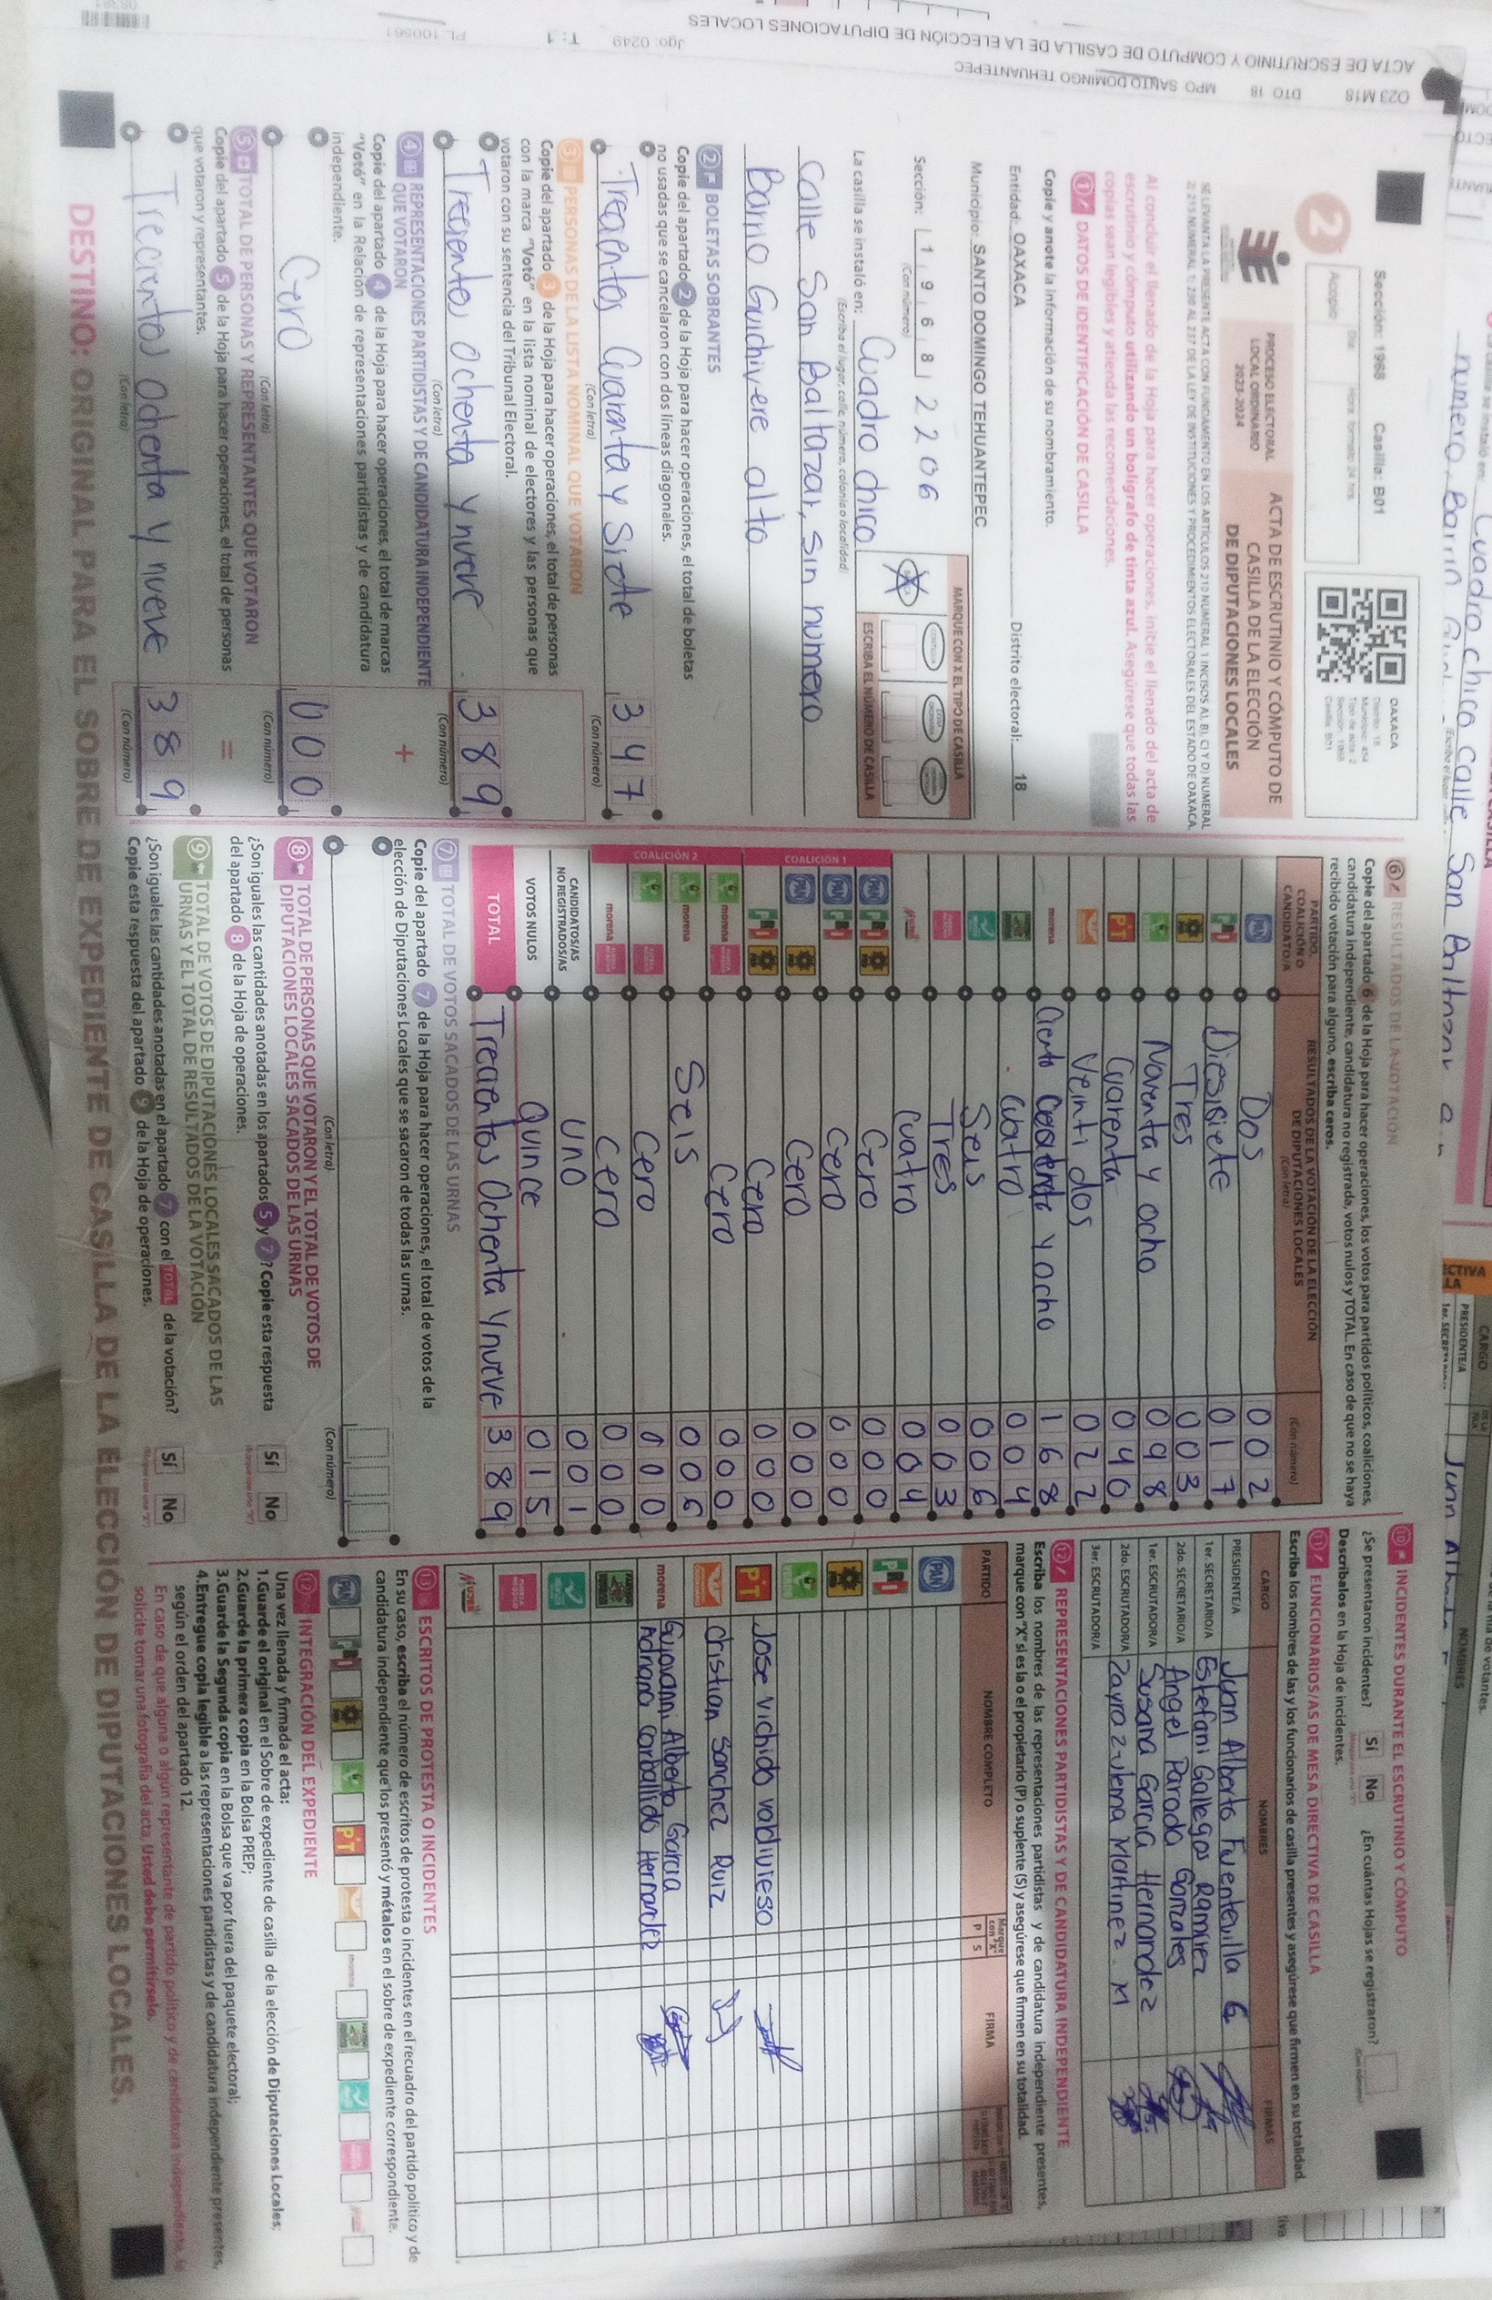 ACTA DE ESCRUTINIO Y CÓMPUTO DE CASILLA DE LA ELECCIÓN DE DIPUTACIONES LOCALES
023 M18 DTO 18 MPO SANTO DOMINGO TEHUANTEPEC
Jgo: 0249 T: 1
Cuadro chico calle San Baltazar
numero, Barrio
Sección: 1968 Casilla: B01
2
Acopio
OAXACA
PROCESO ELECTORAL
LOCAL ORDINARIO
2023-2024
ACTA DE ESCRUTINIO Y CÓMPUTO DE
CASILLA DE LA ELECCIÓN
DE DIPUTACIONES LOCALES
Al concluir el llenado de la Hoja para hacer operaciones, inicie el llenado del acta de
escrutinio y cómputo utilizando un bolígrafo de tinta azul. Asegúrese que todas las
copias sean legibles y atienda las recomendaciones.
1 DATOS DE IDENTIFICACIÓN DE CASILLA
Copie y anote la información de su nombramiento.
Entidad: OAXACA Distrito electoral: 18
Municipio: SANTO DOMINGO TEHUANTEPEC
Sección: 1 9 6 8 2206
(Con número)
MARQUE CON X EL TIPO DE CASILLA
ESCRIBA EL NÚMERO DE CASILLA
La casilla se instaló en: Cuadro chico
(Escriba el lugar, calle, número, colonia o localidad)
Calle San Baltazar, sin numero
Barrio Guichivere alto
2 BOLETAS SOBRANTES
Copie del apartado 2 de la Hoja para hacer operaciones, el total de boletas
no usadas que se cancelaron con dos líneas diagonales.
Trecientos Cuarenta y Siete 347
(Con letra) (Con número)
3 PERSONAS DE LA LISTA NOMINAL QUE VOTARON
Copie del apartado 3 de la Hoja para hacer operaciones, el total de personas
con la marca "Votó" en la lista nominal de electores y las personas que
votaron con su sentencia del Tribunal Electoral.
Trecientos Ochenta y nueve 389
(Con letra) (Con número)
4 REPRESENTACIONES PARTIDISTAS Y DE CANDIDATURA INDEPENDIENTE
QUE VOTARON
Copie del apartado 4 de la Hoja para hacer operaciones, el total de marcas
"Votó" en la Relación de representaciones partidistas y de candidatura
independiente.
+
Cero 000
(Con letra) (Con número)
5 TOTAL DE PERSONAS Y REPRESENTANTES QUE VOTARON
Copie del apartado 5 de la Hoja para hacer operaciones, el total de personas
que votaron y representantes.
=
Trecientos Ochenta y nueve 389
(Con letra) (Con número)
6 RESULTADOS DE LA VOTACIÓN
Copie del apartado 6 de la Hoja para hacer operaciones, los votos para partidos políticos, coaliciones,
candidatura independiente, candidatura no registrada, votos nulos y TOTAL. En caso de que no se haya
recibido votación para alguno, escriba ceros.
PARTIDO,
COALICIÓN O
CANDIDATO/A
RESULTADOS DE LA VOTACIÓN DE LA ELECCIÓN
DE DIPUTACIONES LOCALES
(Con letra) (Con número)
PAN Dos 002
PRI Diesisiete 017
Tres 003
Noventa y ocho 098
PT Cuarenta 040
Veinti dos 022
morena Ciento y ocho 168
Cuatro 004
Seis 006
Tres 003
Cuatro 004
COALICIÓN 1
PAN PRI Cero 000
PAN PRI Cero 000
PAN Cero 000
PRI Cero 000
COALICIÓN 2
morena Cero 000
morena Seis 006
Cero 000
morena Cero 000
CANDIDATOS/AS
NO REGISTRADOS/AS Uno 001
VOTOS NULOS Quince 015
TOTAL Trecientos Ochenta y nueve 389
7 TOTAL DE VOTOS SACADOS DE LAS URNAS
Copie del apartado 7 de la Hoja para hacer operaciones, el total de votos de la
elección de Diputaciones Locales que se sacaron de todas las urnas.
(Con letra) (Con número)
8 TOTAL DE PERSONAS QUE VOTARON Y EL TOTAL DE VOTOS DE
DIPUTACIONES LOCALES SACADOS DE LAS URNAS
¿Son iguales las cantidades anotadas en los apartados 5 y 7? Copie esta respuesta
del apartado 8 de la Hoja de operaciones.
Sí No
9 TOTAL DE VOTOS DE DIPUTACIONES LOCALES SACADOS DE LAS
URNAS Y EL TOTAL DE RESULTADOS DE LA VOTACIÓN
¿Son iguales las cantidades anotadas en el apartado 7 con el TOTAL de la votación?
Copie esta respuesta del apartado 9 de la Hoja de operaciones.
Sí No
10 INCIDENTES DURANTE EL ESCRUTINIO Y CÓMPUTO
¿Se presentaron incidentes? Sí No ¿En cuántas Hojas se registraron?
Descríbalos en la Hoja de incidentes.
11 FUNCIONARIOS/AS DE MESA DIRECTIVA DE CASILLA
Escriba los nombres de las y los funcionarios de casilla presentes y asegúrese que firmen en su totalidad.
CARGO NOMBRES FIRMAS
PRESIDENTE/A Juan Alberto Fuentevilla G
1er. SECRETARIO/A Estefani Gallegos Ramirez
2do. SECRETARIO/A Angel Parada Gonzales
1er. ESCRUTADOR/A Susana Garcia Hernandez
2do. ESCRUTADOR/A Zayra Zulema Martinez. M
3er. ESCRUTADOR/A
12 REPRESENTACIONES PARTIDISTAS Y DE CANDIDATURA INDEPENDIENTE
Escriba los nombres de las representaciones partidistas y de candidatura independiente presentes,
marque con "X" si es la o el propietario (P) o suplente (S) y asegúrese que firmen en su totalidad.
PARTIDO NOMBRE COMPLETO Marque con "X" P S FIRMA
PAN
PRI
PT Jose vichido valdivieso
Cristian Sanchez Ruiz
morena Guiovanni Alberto Garcia
Adriana Carballido Hernandez
MUJER
13 ESCRITOS DE PROTESTA O INCIDENTES
En su caso, escriba el número de escritos de protesta o incidentes en el recuadro del partido político y de
candidatura independiente que los presentó y métalos en el sobre de expediente correspondiente.
PAN PRI PT morena
INTEGRACIÓN DEL EXPEDIENTE
Una vez llenada y firmada el acta:
1.Guarde el original en el Sobre de expediente de casilla de la elección de Diputaciones Locales;
2.Guarde la primera copia en la Bolsa PREP;
3.Guarde la Segunda copia en la Bolsa que va por fuera del paquete electoral;
4.Entregue copia legible a las representaciones partidistas y de candidatura independiente presentes,
según el orden del apartado 12.
En caso de que alguna o algún representante de partido político y de candidatura independiente
solicite tomar una fotografía del acta, Usted debe permitírselo.
DESTINO: ORIGINAL PARA EL SOBRE DE EXPEDIENTE DE CASILLA DE LA ELECCIÓN DE DIPUTACIONES LOCALES.